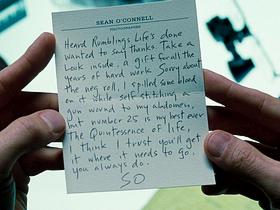 SEAN O'CONNELL
PHOTOGRAPHER
Heard Rumblings Life's done
wanted to say thanks. Take a
Look inside, a gift for all the
years of hard work. Sorry about
the neg roll, I spilled some blood
on it while self stitching a
gun wound to my abdomen,
but number 25 is my best ever
The Quintessence of life,
I think I trust you'll get
it where it needs to go,
you always do.
SO